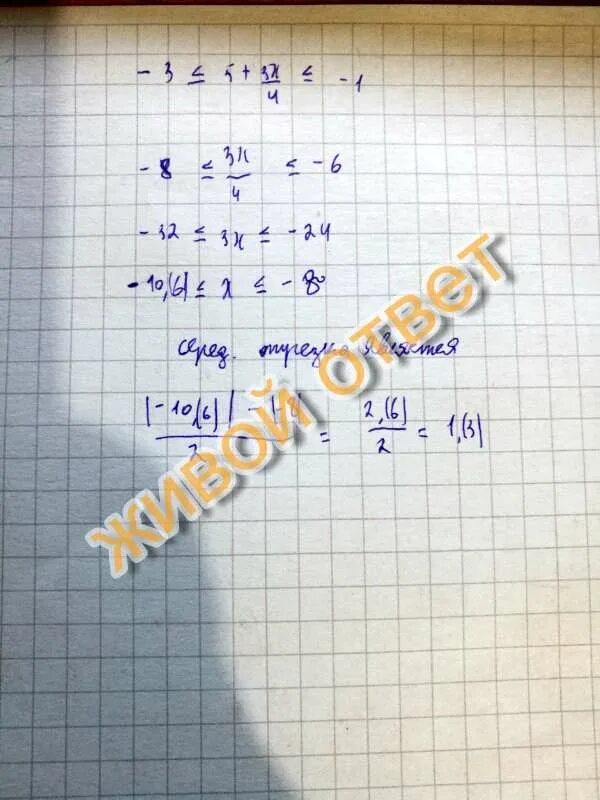 - 3 ≤ 5 + 3x/4 ≤ -1
- 8 ≤ 3x/4 ≤ -6
-32 ≤ 3x ≤ -24
-10,(6) ≤ x ≤ -8
серед. отрезка является
|-10,(6)| - |-8|/2 = 2,(6)/2 = 1,(3)
ЖИВОЙ ОТВЕТ